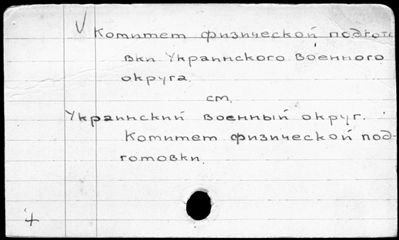 V Комитет физической подгото
вки Украинского военного
округа.
см.
Украинский военный округ.
Комитет физической под-
готовки.
+